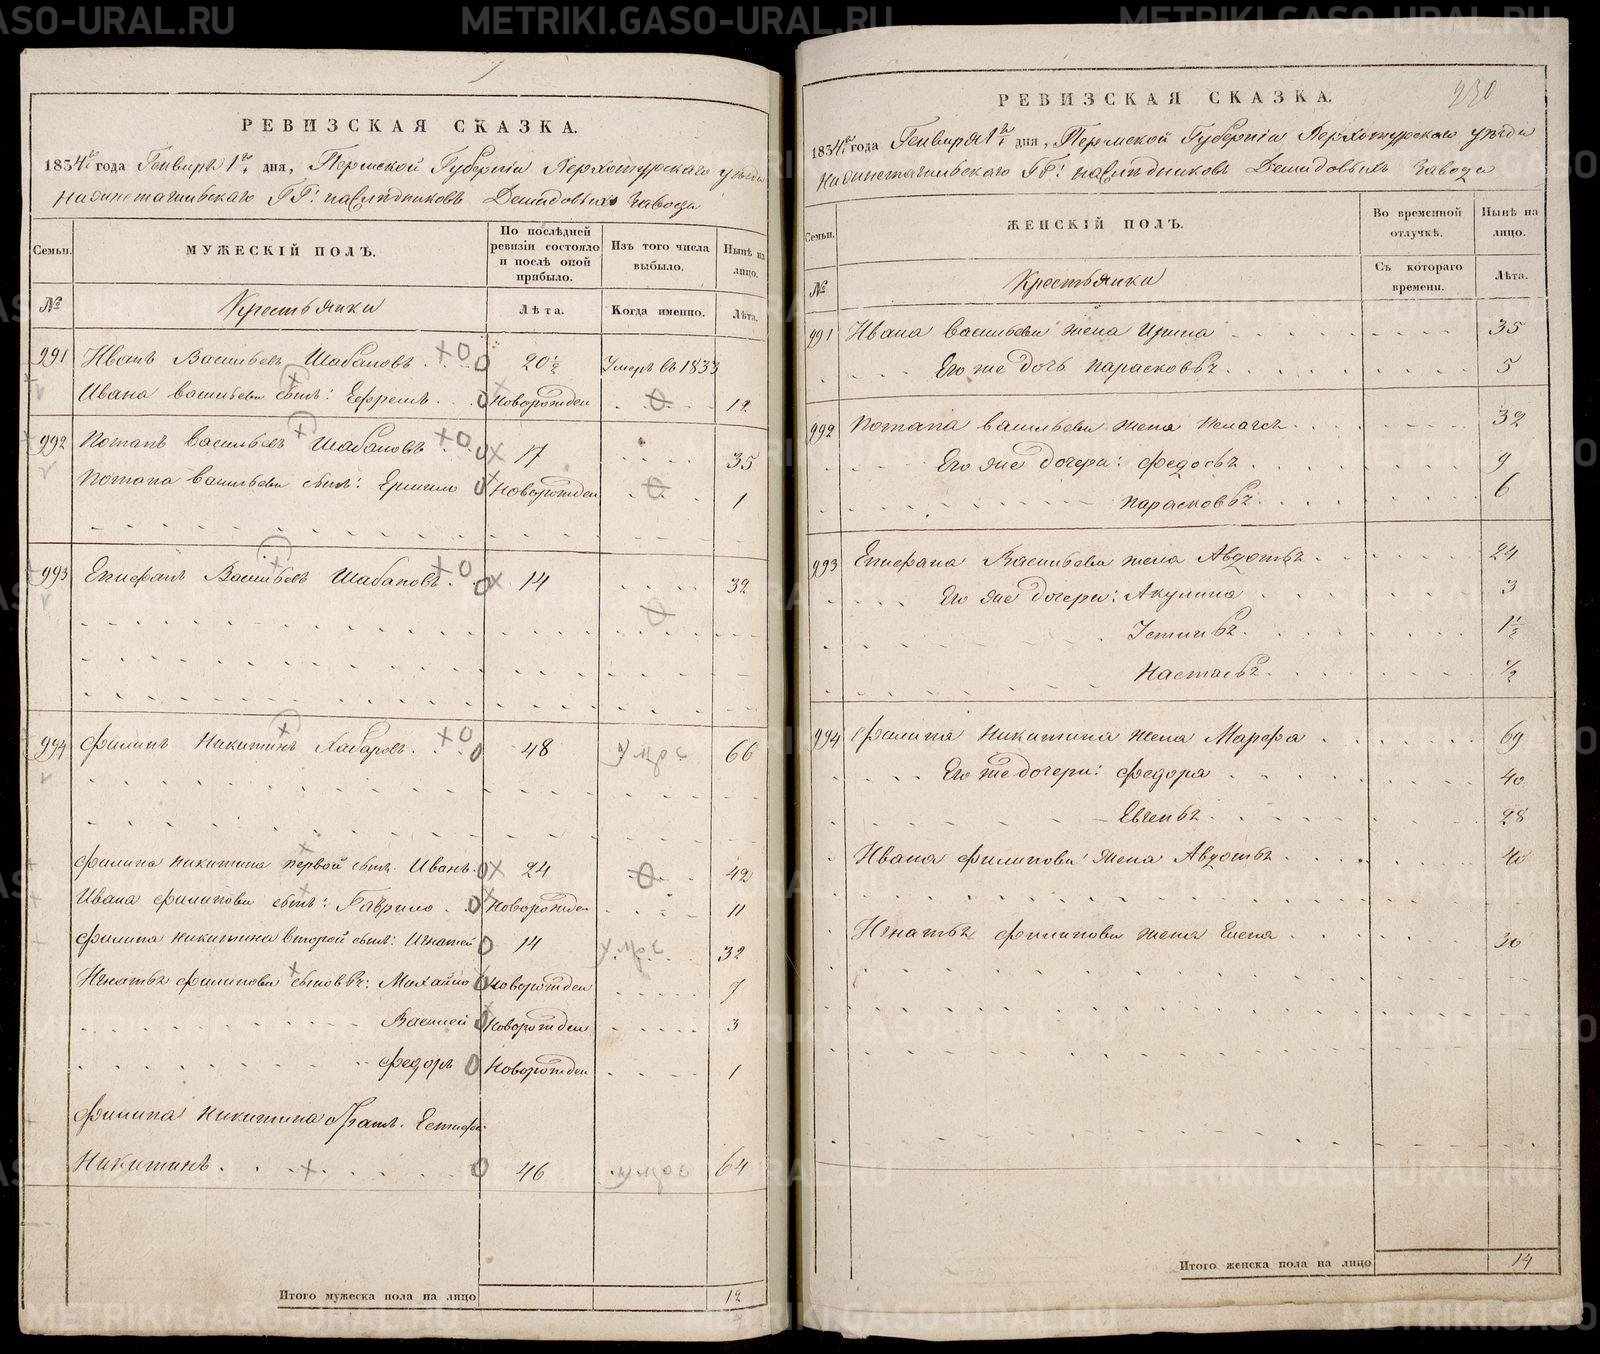 РЕВИЗСКАЯ СКАЗКА.
1834 года Генваря 1го дня, Пермской Губерніи Верхотурскаго уѣзда
Нижнетагильскаго ГГ: наслѣдниковъ Демидовыхъ завода
Семьи. МУЖЕСКІЙ ПОЛЪ. По послѣдней ревизіи состояло и послѣ оной прибыло. Изъ того числа выбыло. Нынѣ на лицо.
№ Крестьянки Лѣта. Когда именно. Лѣта.
991 Иванъ Васильевъ Шабановъ 20½ Умеръ въ 1833
Ивана Васильева сынъ: Ефремъ Новорожден 12
992 Потапъ Васильевъ Шабановъ 17 35
Потапа Васильева сынъ: Ермило Новорожден 1
993 Епифанъ Васильевъ Шабановъ 14 32
994 Филипъ Никитинъ Хабаровъ 48 умре 66
Филипа Никитина первой сынъ Иванъ 24 42
Ивана Филипова сынъ: Гаврило Новорожден 11
Филипа Никитина второй сынъ: Игнатей 14 умре 32
Игнатья Филипова сыновья: Михайло Новорожден 7
Василей Новорожден 3
Федоръ Новорожден 1
Филипа Никитина братъ Естифей
Никитинъ 46 умре 64
Итого мужеска пола на лицо 12
230
РЕВИЗСКАЯ СКАЗКА.
1834 года Генваря 1го дня, Пермской Губерніи Верхотурскаго уѣзда
Нижнетагильскаго ГГ: наслѣдниковъ Демидовыхъ завода
Семьи. ЖЕНСКІЙ ПОЛЪ. Во временной отлучкѣ. Нынѣ на лицо.
№ Крестьянки Съ котораго времени. Лѣта.
991 Ивана Васильева жена Ирина 35
Его же дочь Парасковья 5
992 Потапа Васильева жена Пелагея 32
Его же дочери: Федосья 9
Парасковья 6
993 Епифана Васильева жена Авдотья 24
Его же дочери: Акулина 3
Устинья 1½
Настасья ½
994 Филипа Никитина жена Марфа 69
Его же дочери: Федора 40
Евгенья 28
Ивана Филипова жена Авдотья 40
Игнатья Филипова жена Елена 30
Итого женска пола на лицо 14
METRIKI.GASO-URAL.RU